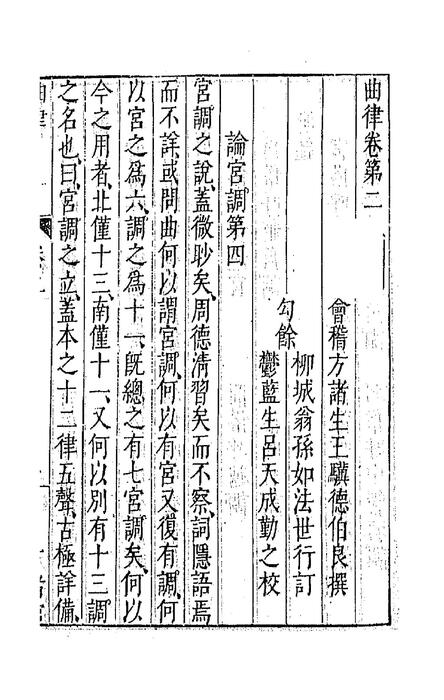 曲律卷第二
會稽方諸生王驥德伯良撰
柳城翁孫如法世行訂
勾餘
鬱藍生呂天成勤之校
論宮調第四
宮調之說、蓋微眇矣、周德清習矣而不察、詞隱語焉
而不詳、或問曲何以謂宮調、何以有宮又復有調、何
以宮之爲六、調之爲十一、旣總之有七宮調矣、何以
今之用者、北僅十三、南僅十一、又何以別有十三調
之名也、曰、宮調之立、蓋本之十二律五聲、古極詳備、
曲律